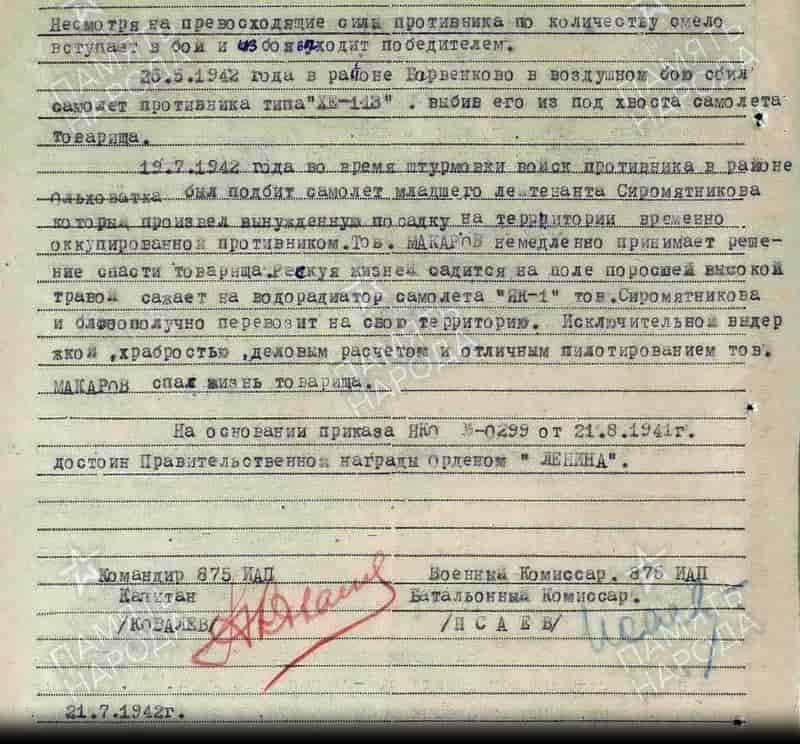 Несмотря на превосходящие силы противника по количеству смело
вступает в бой и из боя выходит победителем.
25.5.1942 года в районе Барвенково в воздушном бою сбил
самолет противника типа"ХЕ-113" . выбив его из под хвоста самолета
товарища.
19.7.1942 года во время штурмовки войск противника в районе
Ольховатка был подбит самолет младшего лейтенанта Сиромятникова
который произвел вынужденную посадку на территории временно
оккупированной противником.Тов. МАКАРОВ немедленно принимает реше-
ние спасти товарища.Рескуя жизнею садится на поле поросшей высокой
травой сажает на водорадиатор самолета "ЯК-1" тов.Сиромятникова
и благополучно перевозит на свою территорию. Исключительной выдер
жкой ,храбростью ,деловым расчетом и отличным пилотированием тов.
МАКАРОВ спас жизнь товарища.
На основании приказа НКО №-0299 от 21.8.1941г.
достоин Правительственной награды Орденом " ЛЕНИНА".
Командир 875 ИАП
Капитан
/КОВАЛЕВ/
Военный Комиссар. 875 ИАП
Батальонный Комиссар.
/ИСАЕВ/
Исаев
21.7.1942г.
ПАМЯТЬ НАРОДА
ПАМЯТЬ НАРОДА
ПАМЯТЬ НАРОДА
ПАМЯТЬ НАРОДА
ПАМЯТЬ НАРОДА